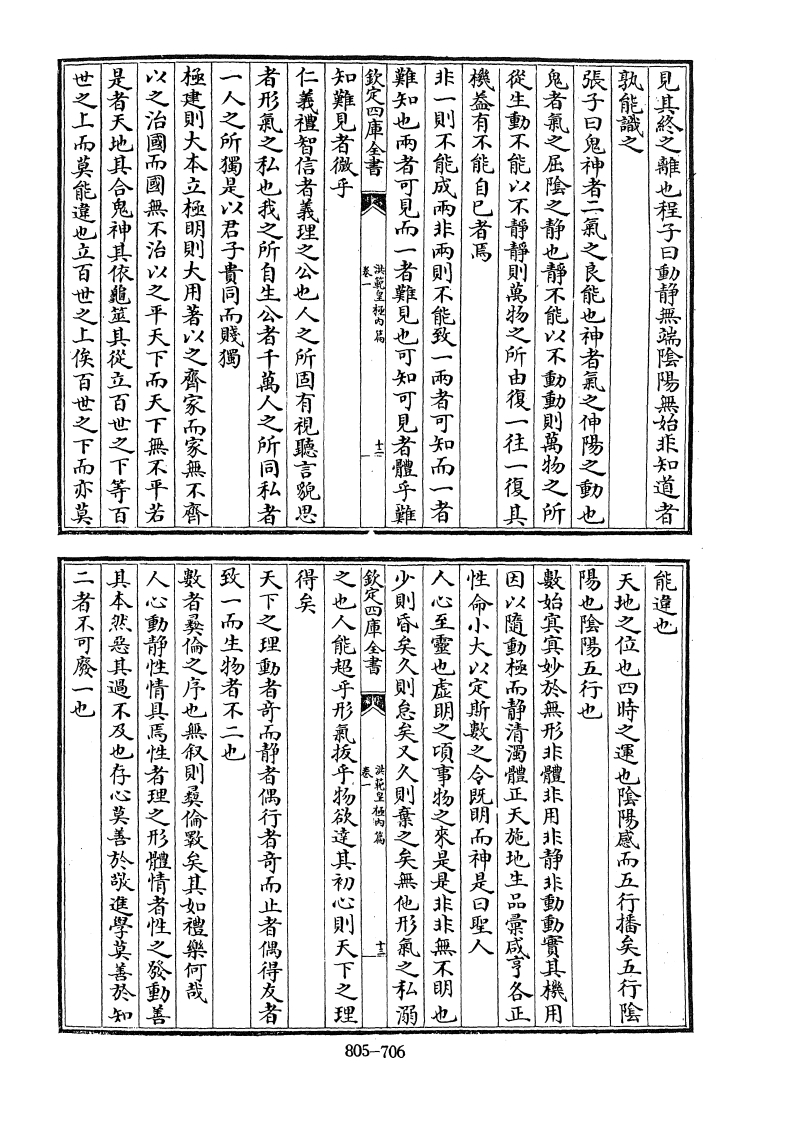 見其終之離也程子曰動静無端陰陽無始非知道者
孰能識之
張子曰鬼神者二氣之良能也神者氣之伸陽之動也
鬼者氣之屈陰之静也静不能以不動動則萬物之所
從生動不能以不静静則萬物之所由復一往一復其
機葢有不能自已者焉
非一則不能成兩非兩則不能致一兩者可知而一者
難知也兩者可見而一者難見也可知可見者體乎難
欽定四庫全書
洪範皇極内篇
卷一
十二
知難見者微乎
仁義禮智信者義理之公也人之所固有視聽言貌思
者形氣之私也我之所自生公者千萬人之所同私者
一人之所獨是以君子貴同而賤獨
極建則大本立極明則大用著以之齊家而家無不齊
以之治國而國無不治以之平天下而天下無不平若
是者天地其合鬼神其依龜筮其從立百世之下等百
世之上而莫能違也立百世之上俟百世之下而亦莫
能違也
天地之位也四時之運也陰陽感而五行播矣五行陰
陽也陰陽五行也
數始冥冥妙於無形非體非用非静非動動實其機用
因以隨動極而静清濁體正天施地生品彚咸亨各正
性命小大以定斯數之令既明而神是曰聖人
人心至靈也虚明之頃事物之來是是非非無不明也
少則昏矣久則怠矣又久則棄之矣無他形氣之私溺
欽定四庫全書
洪範皇極内篇
卷一
十三
之也人能超乎形氣拔乎物欲達其初心則天下之理
得矣
天下之理動者奇而静者偶行者奇而止者偶得友者
致一而生物者不二也
數者彛倫之序也無叙則彛倫斁矣其如禮樂何哉
人心動静性情具焉性者理之形體情者性之發動善
其本然惡其過不及也存心莫善於敬進學莫善於知
二者不可廢一也
805-706